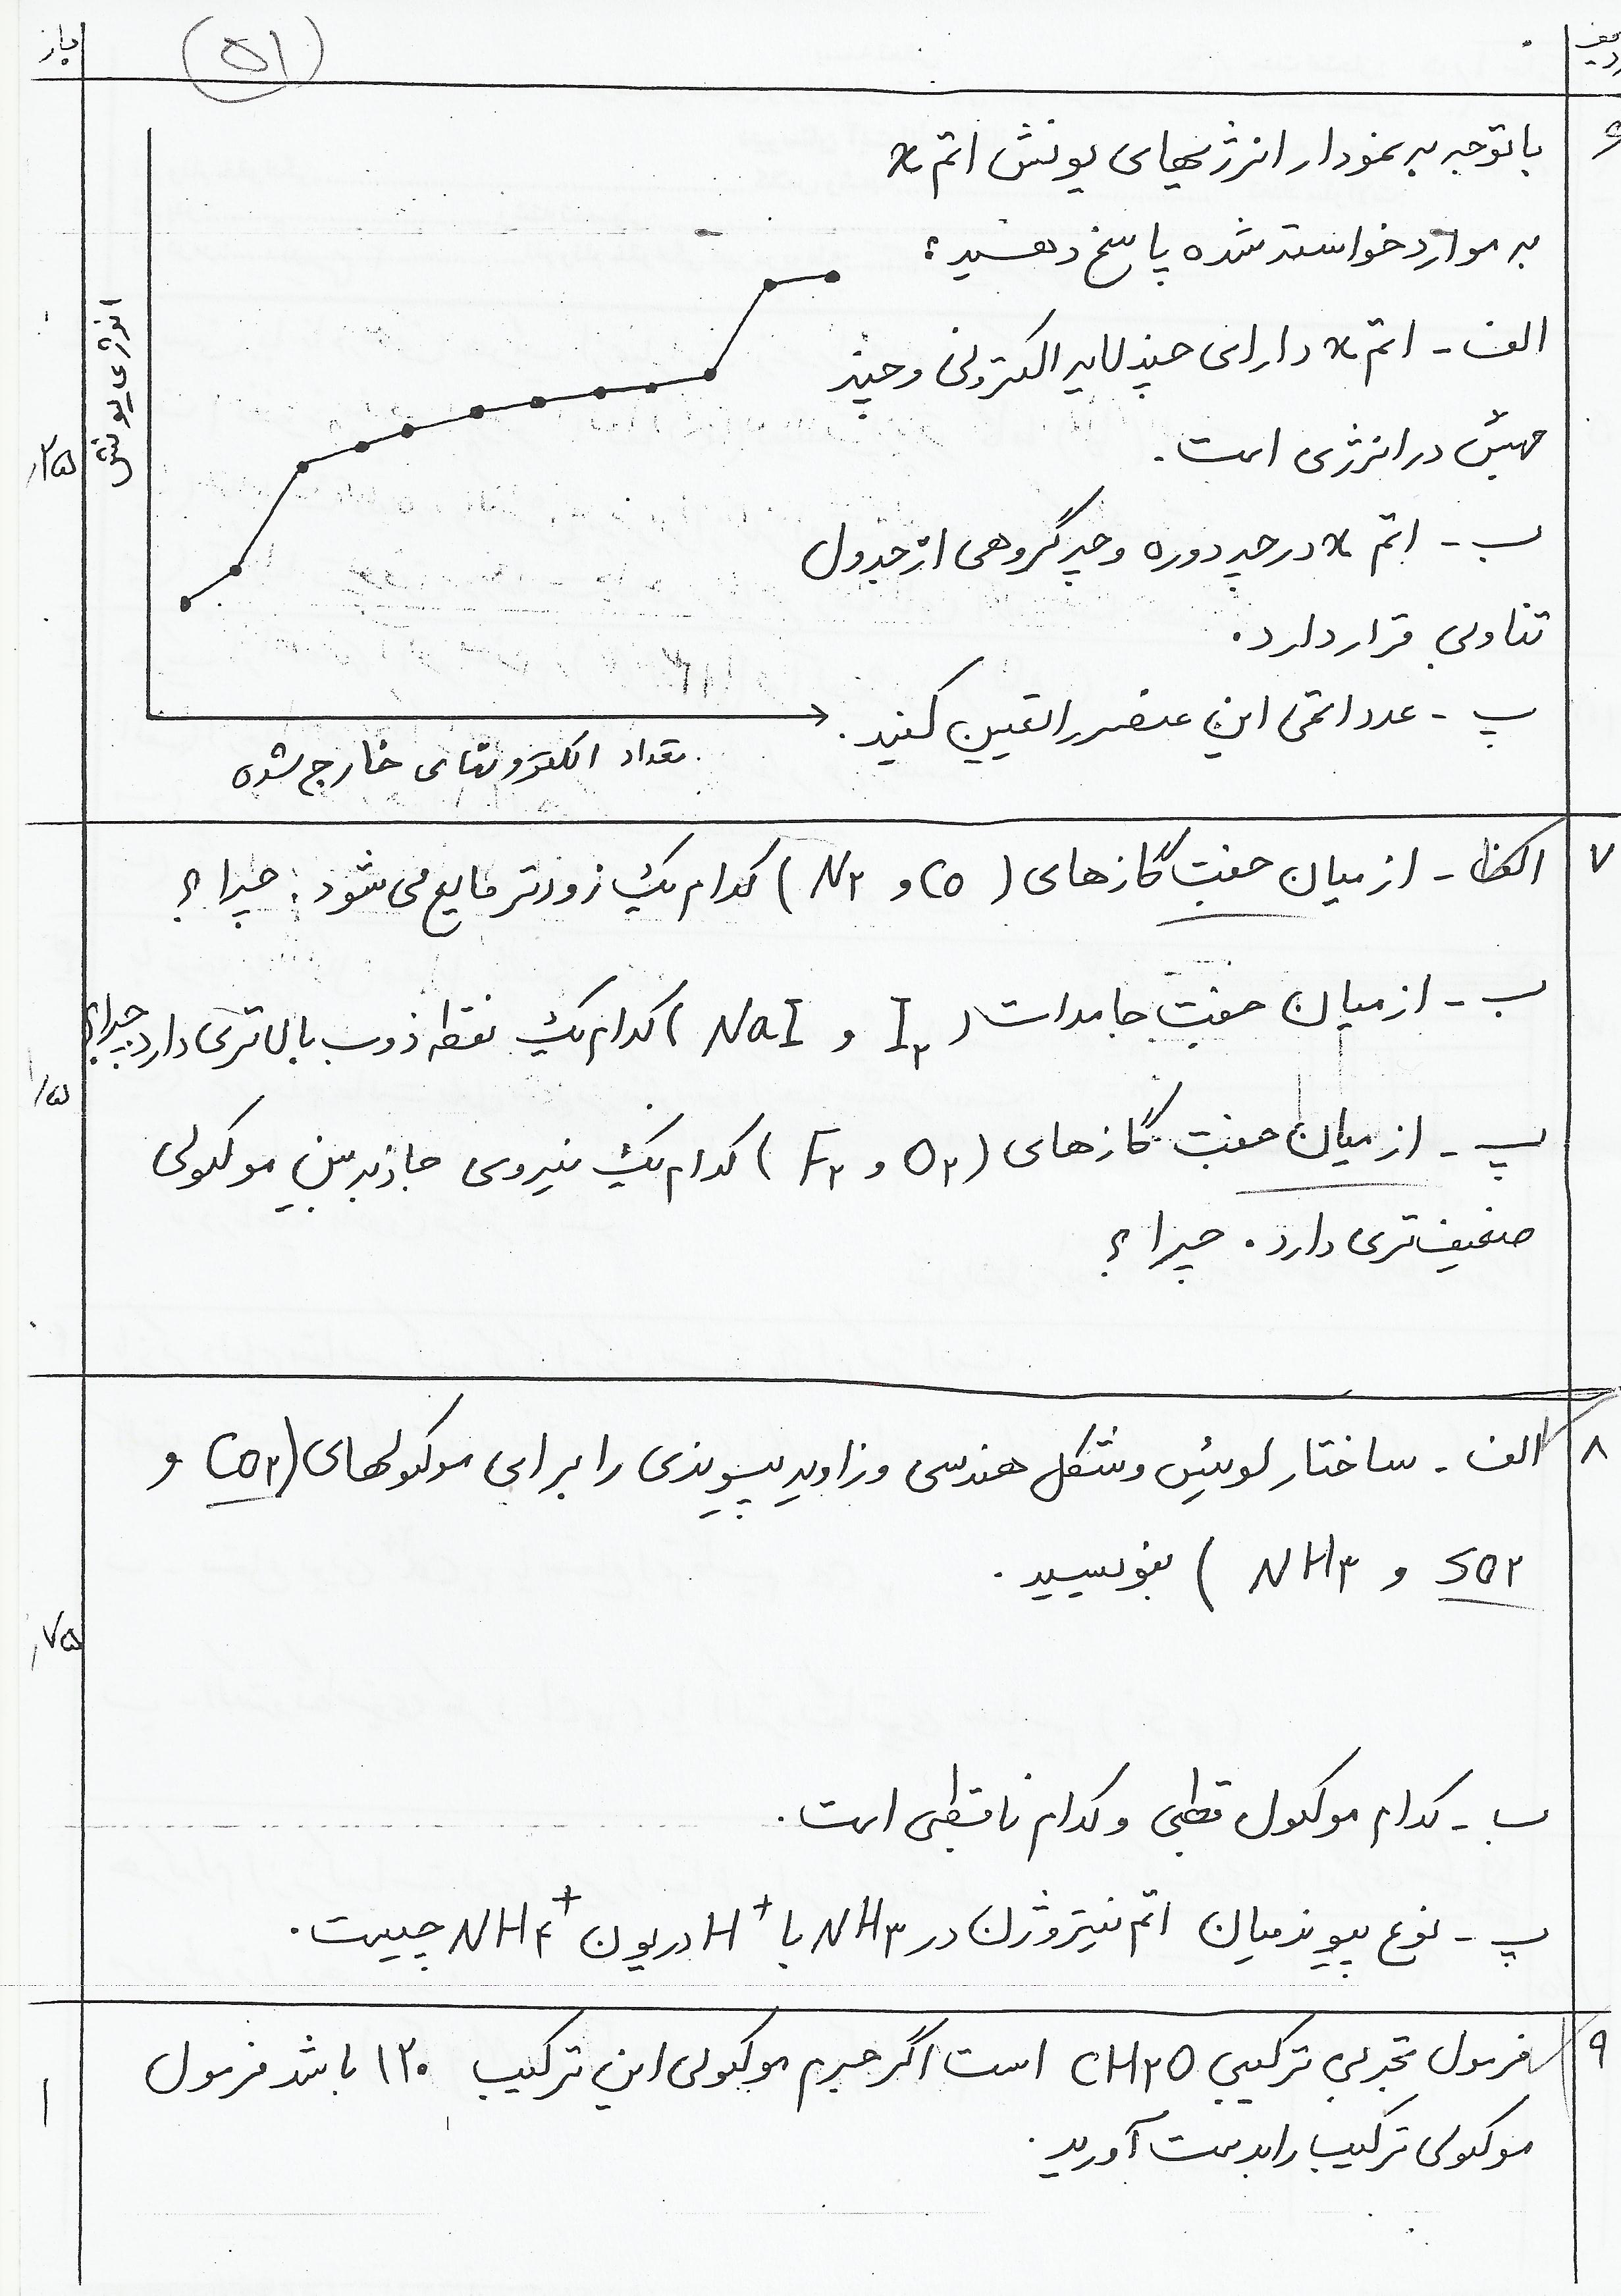 ردیف
بارم
(۵۱)
۶
با توجه به نمودار انرژیهای یونش اتم x
به موارد خواسته شده پاسخ دهید:
الف - اتم x دارای چند لایه الکترونی و چند
جهش در انرژی است.
ب - اتم x در چه دوره و چه گروهی از جدول
تناوبی قرار دارد.
پ - عدد اتمی این عنصر را تعیین کنید.
انرژی یونش
تعداد الکترونهای خارج شده
٫۲۵
۷
الف - از میان جفت گازهای (CO و N۲) کدام یک زودتر مایع می شود. چرا؟
ب - از میان جفت جامدات (I۲ و NaI) کدام یک نقطه ذوب بالاتری دارد چرا؟
پ - از میان جفت گازهای (O۲ و F۲) کدام یک نیروی جاذبه بین مولکولی
ضعیف تری دارد. چرا؟
۱/۵
۸
الف - ساختار لوئیس و شکل هندسی و زاویه پیوندی را برای مولکولهای (CO۲ و
SO۲ و NH۳) بنویسید.
٫۷۵
ب - کدام مولکول قطبی و کدام ناقطبی است.
پ - نوع پیوند میان اتم نیتروژن در NH۳ با H⁺ در یون NH۴⁺ چیست.
۹
فرمول تجربی ترکیبی CH۲O است اگر جرم مولکولی این ترکیب ۱۲۰ باشد فرمول
مولکولی ترکیب را بدست آورید.
۱